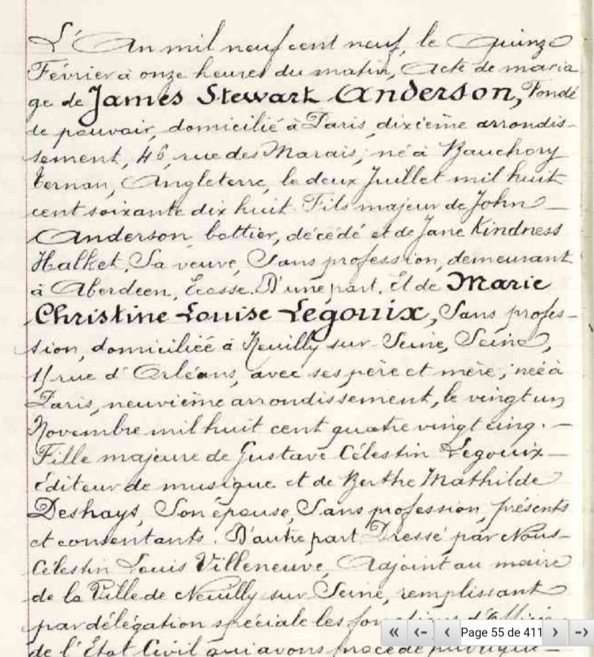 L'An mil neuf cent neuf, le Quinze
Février à onze heures du matin, Acte de maria
ge de James Stewart Anderson, Fondé
de pouvoir, domicilié à Paris, dixième arrondis-
sement, 46, rue des Marais; né à Bauchory
Ternan, Angleterre, le deux Juillet mil huit
cent soixante dix huit. Fils majeur de John
Anderson, bottier, décédé et de Jane Kindness
Halket, Sa veuve, Sans profession, demeurant
à Aberdeen, Ecosse. D'une part. Et de Marie
Christine Louise Legouix, Sans profes-
sion, domiciliée à Neuilly sur Seine, Seine,
11 rue d'Orléans, avec ses père et mère; née à
Paris, neuvième arrondissement, le vingt un
Novembre mil huit cent quatre vingt cinq. -
Fille majeure de Gustave Célestin Legouix -
éditeur de musique et de Berthe Mathilde
Deshays, Son épouse, Sans profession, présents
et consentants. D'autre part Dressé par Nous -
Célestin Louis Villeneuve, Adjoint au maire
de la Ville de Neuilly sur Seine, remplissant
par délégation spéciale les fonctions d'Officier
de l'Etat Civil qui avons procédé publique-
Page 55 de 411